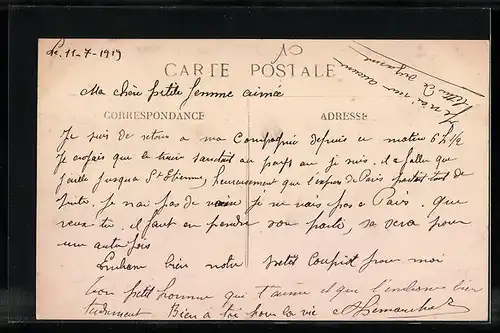 Le. 11-7-1919
10
Je n'ai eu aucune
lettre
CARTE POSTALE
Ma chère petite femme aimée
CORRESPONDANCE
ADRESSE
Je suis de retour a ma Compagnie depuis ce matin 6 h 1/2
Je croyais que le train au pays ou je suis. il a fallu que
j'aille jusqua St Etienne, heureusement que l'express de Paris partait tout de
suite. je n'ai pas de veine je ne vais pas a Paris. que
veux tu. il faut en prendre son parti, sa sera pour
une autre fois
Embrasse bien notre petit Coupict pour moi
ton petit homme qui t'aime et que t'embrasse bien
tendrement Bien à toi pour la vie